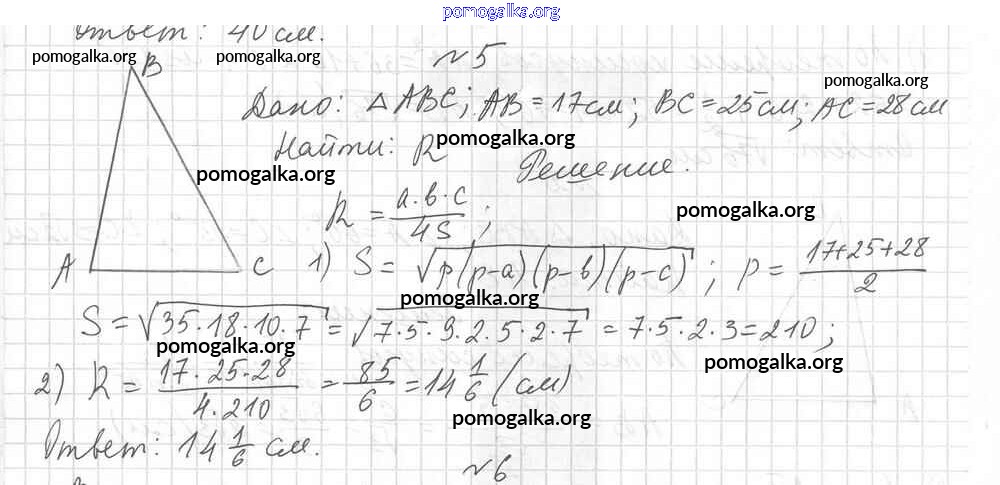 pomogalka.org
Ответ: 40 см.
pomogalka.org pomogalka.org
B
№5
pomogalka.org
Дано: △ABC; AB = 17 см; BC = 25 см; AC = 28 см
pomogalka.org
Найти: R
pomogalka.org
Решение.
R = a·b·c / 4S ;
pomogalka.org
A C
1) S = √p(p-a)(p-b)(p-c) ; p = 17+25+28 / 2
pomogalka.org
S = √35·18·10·7 = √7·5·9·2·5·2·7 = 7·5·2·3 = 210;
pomogalka.org pomogalka.org
2) R = 17·25·28 / 4·210 = 85/6 = 14 1/6 (см)
pomogalka.org
Ответ: 14 1/6 см.
№6